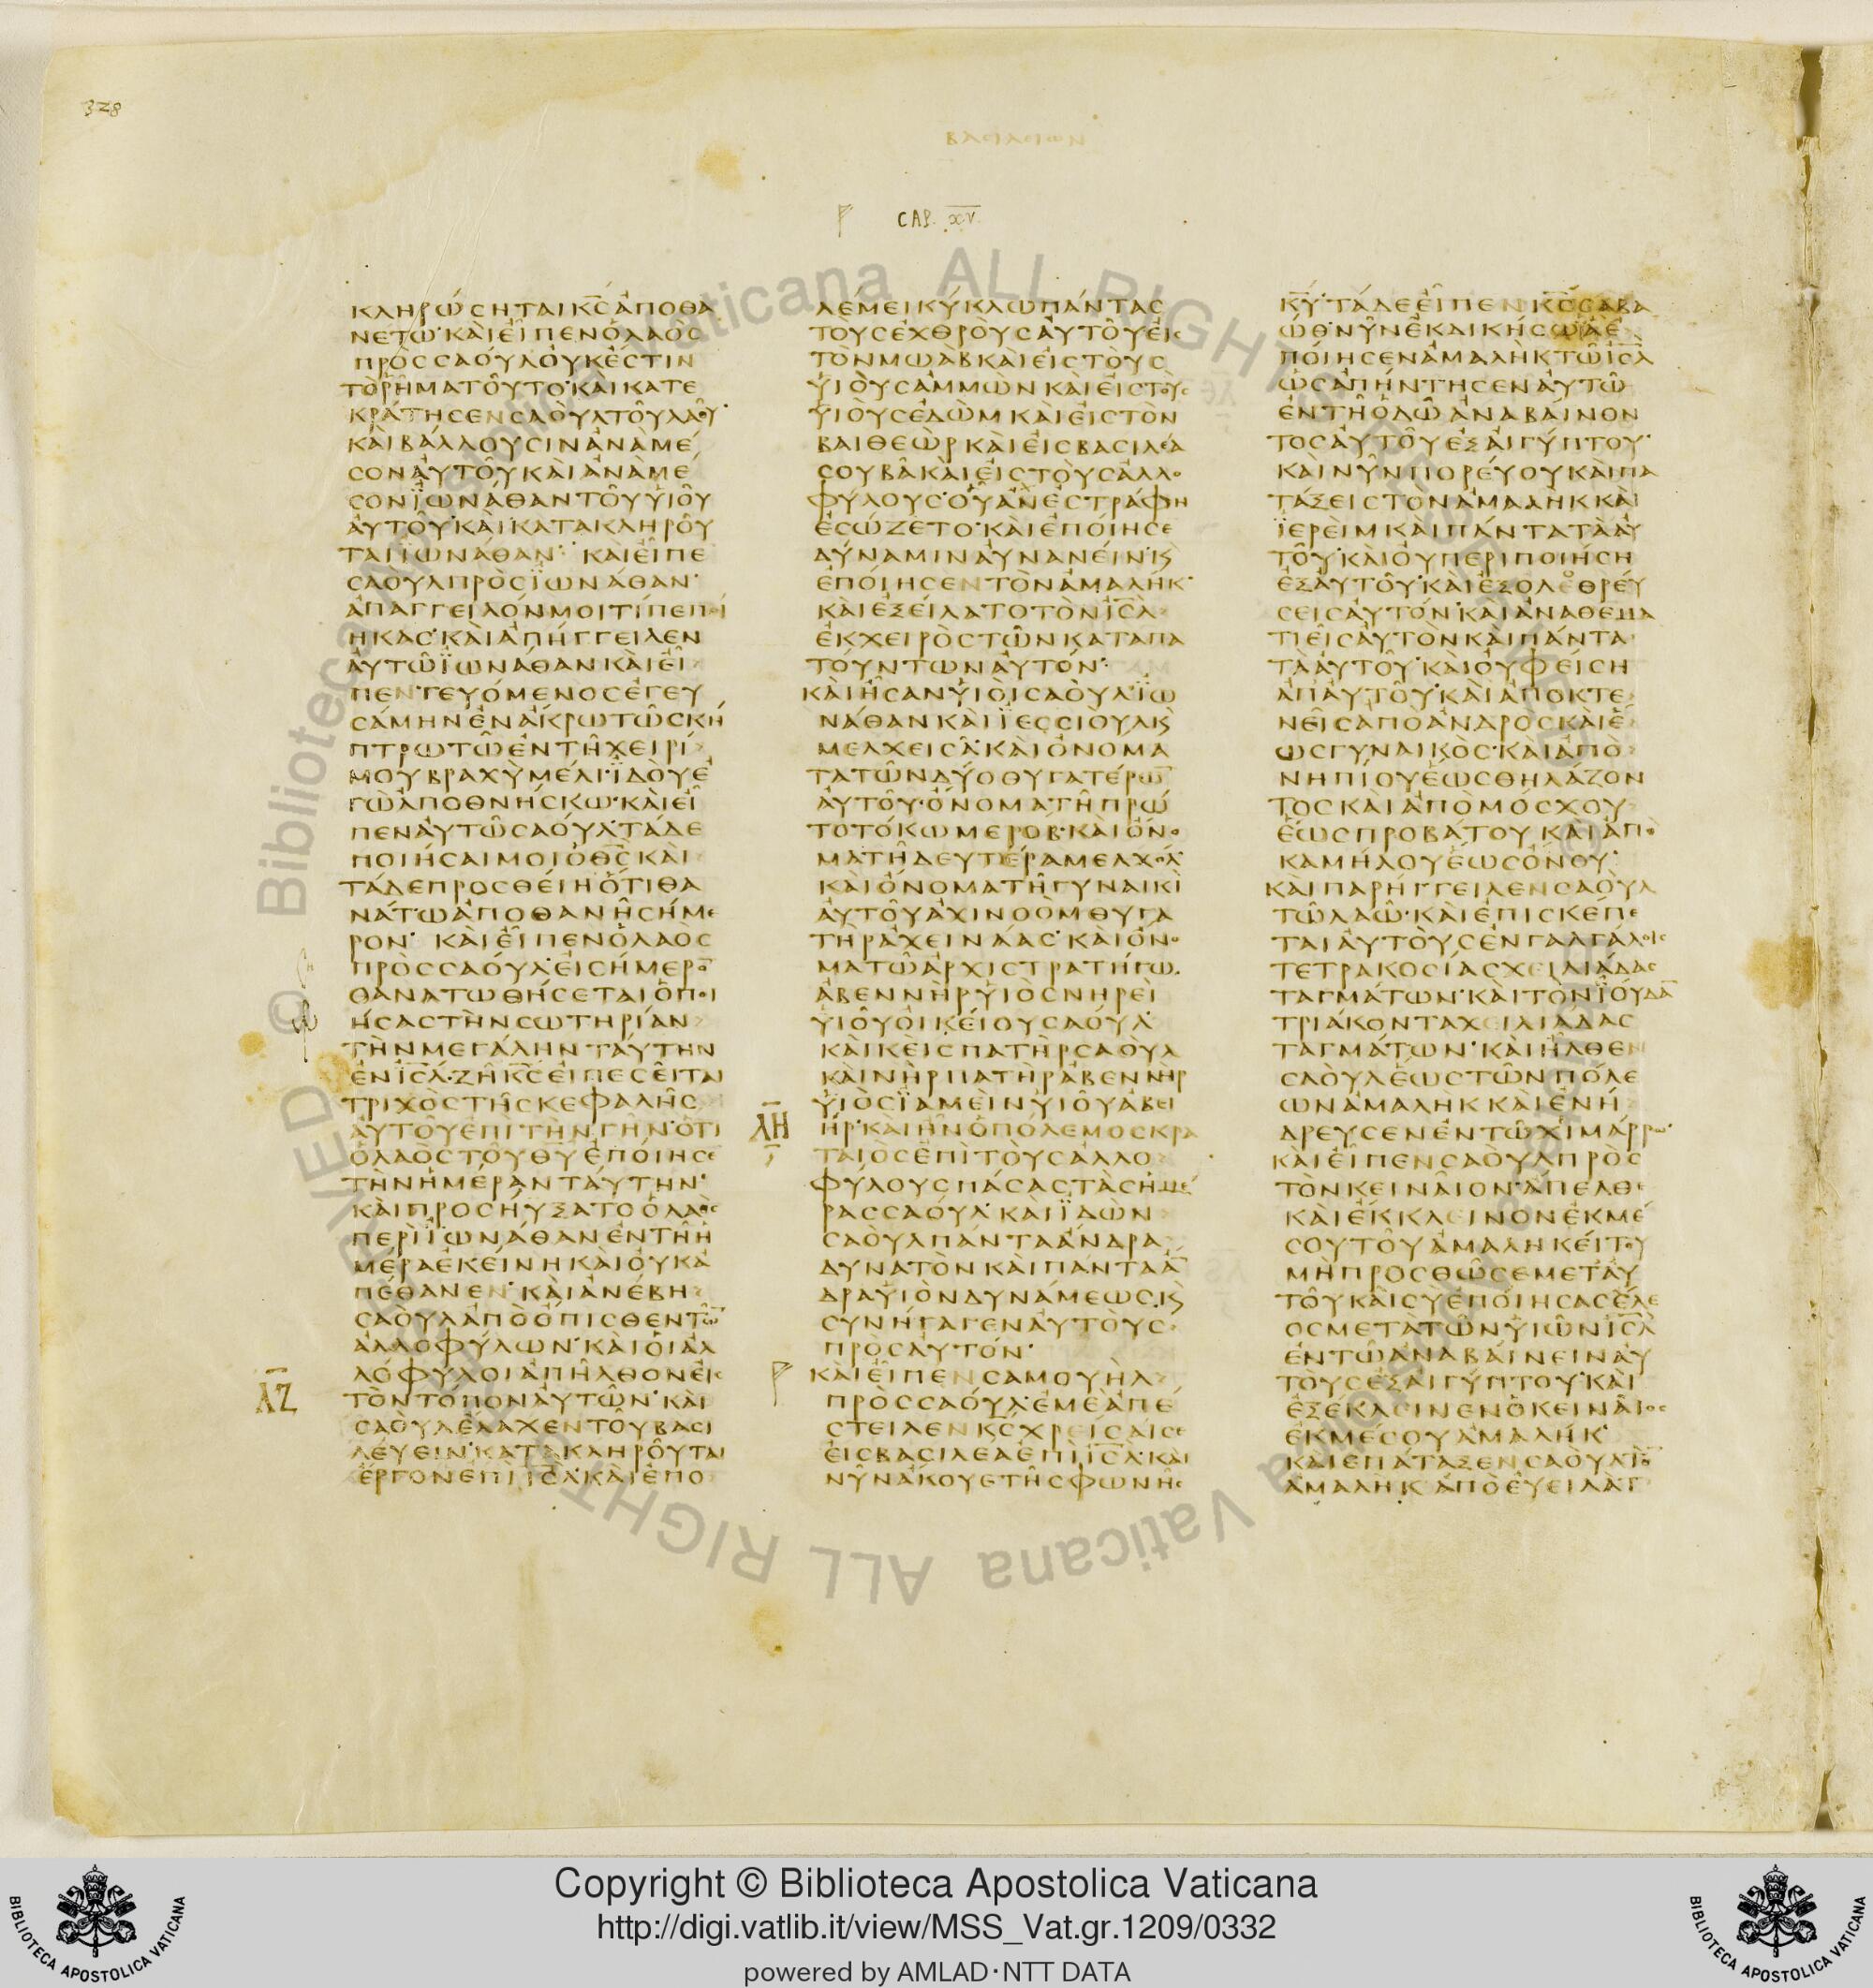 328
ΒΑΣΙΛΕΙΩΝ
CAP. XV.
ΚΛΗΡΩΣΗΤΑΙ ΚΣ ΑΠΟΘΑ
ΝΕΤΩ ΚΑΙ ΕΙΠΕΝ Ο ΛΑΟΣ
ΠΡΟΣ ΣΑΟΥΛ ΟΥΚ ΕΣΤΙΝ
ΤΟ ΡΗΜΑ ΤΟΥΤΟ ΚΑΙ ΚΑΤΕ
ΚΡΑΤΗΣΕΝ ΣΑΟΥΛ ΤΟΥ ΛΑΟΥ
ΚΑΙ ΒΑΛΛΟΥΣΙΝ ΑΝΑ ΜΕ
ΣΟΝ ΑΥΤΟΥ ΚΑΙ ΑΝΑ ΜΕ
ΣΟΝ ΙΩΝΑΘΑΝ ΤΟΥ ΥΙΟΥ
ΑΥΤΟΥ ΚΑΙ ΚΑΤΑΚΛΗΡΟΥ
ΤΑΙ ΙΩΝΑΘΑΝ ΚΑΙ ΕΙΠΕ
ΣΑΟΥΛ ΠΡΟΣ ΙΩΝΑΘΑΝ
ΑΠΑΓΓΕΙΛΟΝ ΜΟΙ ΤΙ ΠΕΠΟΙ
ΗΚΑΣ ΚΑΙ ΑΠΗΓΓΕΙΛΕΝ
ΑΥΤΩ ΙΩΝΑΘΑΝ ΚΑΙ ΕΙ
ΠΕΝ ΓΕΥΟΜΕΝΟΣ ΕΓΕΥ
ΣΑΜΗΝ ΕΝ ΑΚΡΩ ΤΩ ΣΚΗ
ΠΤΡΩ ΤΩ ΕΝ ΤΗ ΧΕΙΡΙ
ΜΟΥ ΒΡΑΧΥ ΜΕΛΙ ΙΔΟΥ Ε
ΓΩ ΑΠΟΘΝΗΣΚΩ ΚΑΙ ΕΙ
ΠΕΝ ΑΥΤΩ ΣΑΟΥΛ ΤΑΔΕ
ΠΟΙΗΣΑΙ ΜΟΙ Ο ΘΣ ΚΑΙ
ΤΑΔΕ ΠΡΟΣΘΕΙΗ ΟΤΙ ΘΑ
ΝΑΤΩ ΑΠΟΘΑΝΗ ΣΗΜΕ
ΡΟΝ ΚΑΙ ΕΙΠΕΝ Ο ΛΑΟΣ
ΠΡΟΣ ΣΑΟΥΛ ΕΙ ΣΗΜΕΡΟ
ΘΑΝΑΤΩΘΗΣΕΤΑΙ Ο ΠΟΙ
ΗΣΑΣ ΤΗΝ ΣΩΤΗΡΙΑΝ
ΤΗΝ ΜΕΓΑΛΗΝ ΤΑΥΤΗΝ
ΕΝ ΙΣΛ ΖΗ ΚΣ ΕΙ ΠΕΣΕΙΤΑΙ
ΤΡΙΧΟΣ ΤΗΣ ΚΕΦΑΛΗΣ
ΑΥΤΟΥ ΕΠΙ ΤΗΝ ΓΗΝ ΟΤΙ
Ο ΛΑΟΣ ΤΟΥ ΘΥ ΕΠΟΙΗΣΕ
ΤΗΝ ΗΜΕΡΑΝ ΤΑΥΤΗΝ
ΚΑΙ ΠΡΟΣΗΥΞΑΤΟ Ο ΛΑΟΣ
ΠΕΡΙ ΙΩΝΑΘΑΝ ΕΝ ΤΗ Η
ΜΕΡΑ ΕΚΕΙΝΗ ΚΑΙ ΟΥΚ Α
ΠΕΘΑΝΕΝ ΚΑΙ ΑΝΕΒΗ
ΣΑΟΥΛ ΑΠΟ ΟΠΙΣΘΕΝ ΤΩ
ΑΛΛΟΦΥΛΩΝ ΚΑΙ ΟΙ ΑΛ
ΛΟΦΥΛΟΙ ΑΠΗΛΘΟΝ ΕΙΣ
ΛΖ ΤΟΝ ΤΟΠΟΝ ΑΥΤΩΝ ΚΑΙ
ΣΑΟΥΛ ΕΛΑΧΕΝ ΤΟΥ ΒΑΣΙ
ΛΕΥΕΙΝ ΚΑΤΑΚΛΗΡΟΥΤΑΙ
ΕΡΓΟΝ ΕΠΙ ΙΣΛ ΚΑΙ ΕΠΟ
ΛΕΜΕΙ ΚΥΚΛΩ ΠΑΝΤΑΣ
ΤΟΥΣ ΕΧΘΡΟΥΣ ΑΥΤΟΥ ΕΙΣ
ΤΟΝ ΜΩΑΒ ΚΑΙ ΕΙΣ ΤΟΥΣ
ΥΙΟΥΣ ΑΜΜΩΝ ΚΑΙ ΕΙΣ ΤΟΥΣ
ΥΙΟΥΣ ΕΔΩΜ ΚΑΙ ΕΙΣ ΤΟΝ
ΒΑΙΘΕΩΡ ΚΑΙ ΕΙΣ ΒΑΣΙΛΕΑ
ΣΟΥΒΑ ΚΑΙ ΕΙΣ ΤΟΥΣ ΑΛΛΟ
ΦΥΛΟΥΣ ΟΥ ΑΝ ΕΣΤΡΑΦΗ
ΕΣΩΖΕΤΟ ΚΑΙ ΕΠΟΙΗΣΕ
ΔΥΝΑΜΙΝ ΑΥΝΑΝΕΙΝ Κ
ΕΠΟΙΗΣΕΝ ΤΟΝ ΑΜΑΛΗΚ
ΚΑΙ ΕΞΕΙΛΑΤΟ ΤΟΝ ΙΣΛ
ΕΚ ΧΕΙΡΟΣ ΤΩΝ ΚΑΤΑΠΑ
ΤΟΥΝΤΩΝ ΑΥΤΟΝ
ΚΑΙ ΗΣΑΝ ΥΙΟΙ ΣΑΟΥΛ ΙΩ
ΝΑΘΑΝ ΚΑΙ ΙΕΣΣΙΟΥΛ Κ
ΜΕΛΧΕΙΣΑ ΚΑΙ ΟΝΟΜΑ
ΤΑ ΤΩΝ ΔΥΟ ΘΥΓΑΤΕΡΩ
ΑΥΤΟΥ ΟΝΟΜΑ ΤΗ ΠΡΩ
ΤΟΤΟΚΩ ΜΕΡΟΒ ΚΑΙ ΟΝΟ
ΜΑ ΤΗ ΔΕΥΤΕΡΑ ΜΕΛΧΟΛ
ΚΑΙ ΟΝΟΜΑ ΤΗ ΓΥΝΑΙΚΙ
ΑΥΤΟΥ ΑΧΙΝΟΟΜ ΘΥΓΑ
ΤΗΡ ΑΧΕΙΝΑΑΣ ΚΑΙ ΟΝΟ
ΜΑ ΤΩ ΑΡΧΙΣΤΡΑΤΗΓΩ
ΑΒΕΝΝΗΡ ΥΙΟΣ ΝΗΡΕΙ
ΥΙΟΥ ΟΙΚΕΙΟΥ ΣΑΟΥΛ
ΚΑΙ ΚΕΙΣ ΠΑΤΗΡ ΣΑΟΥΛ
ΚΑΙ ΝΗΡ ΠΑΤΗΡ ΑΒΕΝΝΗΡ
ΥΙΟΣ ΙΑΜΕΙΝ ΥΙΟΥ ΑΒΕΙ
ΛΗ ΗΡ ΚΑΙ ΗΝ Ο ΠΟΛΕΜΟΣ ΚΡΑ
ΤΑΙΟΣ ΕΠΙ ΤΟΥΣ ΑΛΛΟ
ΦΥΛΟΥΣ ΠΑΣΑΣ ΤΑΣ ΗΜΕ
ΡΑΣ ΣΑΟΥΛ ΚΑΙ ΙΔΩΝ
ΣΑΟΥΛ ΠΑΝΤΑ ΑΝΔΡΑ
ΔΥΝΑΤΟΝ ΚΑΙ ΠΑΝΤΑ Α
ΔΡΑ ΥΙΟΝ ΔΥΝΑΜΕΩΣ Κ
ΣΥΝΗΓΑΓΕΝ ΑΥΤΟΥΣ
ΠΡΟΣ ΑΥΤΟΝ
ΚΑΙ ΕΙΠΕΝ ΣΑΜΟΥΗΛ
ΠΡΟΣ ΣΑΟΥΛ ΕΜΕ ΑΠΕ
ΣΤΕΙΛΕΝ ΚΣ ΧΡΕΙΣΑΙ ΣΕ
ΕΙΣ ΒΑΣΙΛΕΑ ΕΠΙ ΙΣΛ ΚΑΙ
ΝΥΝ ΑΚΟΥΕ ΤΗΣ ΦΩΝΗΣ
ΚΥ ΤΑΔΕ ΕΙΠΕΝ ΚΣ ΣΑΒΑ
ΩΘ ΝΥΝ ΕΚΔΙΚΗΣΩ Α Ε
ΠΟΙΗΣΕΝ ΑΜΑΛΗΚ ΤΩ ΙΣΛ
ΩΣ ΑΠΗΝΤΗΣΕΝ ΑΥΤΩ
ΕΝ ΤΗ ΟΔΩ ΑΝΑΒΑΙΝΟΝ
ΤΟΣ ΑΥΤΟΥ ΕΞ ΑΙΓΥΠΤΟΥ
ΚΑΙ ΝΥΝ ΠΟΡΕΥΟΥ ΚΑΙ ΠΑ
ΤΑΞΕΙΣ ΤΟΝ ΑΜΑΛΗΚ ΚΑΙ
ΙΕΡΕΙΜ ΚΑΙ ΠΑΝΤΑ ΤΑ ΑΥ
ΤΟΥ ΚΑΙ ΟΥ ΠΕΡΙΠΟΙΗΣΗ
ΕΞ ΑΥΤΟΥ ΚΑΙ ΕΞΟΛΕΘΡΕΥ
ΣΕΙΣ ΑΥΤΟΝ ΚΑΙ ΑΝΑΘΕΜΑ
ΤΙΕΙΣ ΑΥΤΟΝ ΚΑΙ ΠΑΝΤΑ
ΤΑ ΑΥΤΟΥ ΚΑΙ ΟΥ ΦΕΙΣΗ
ΑΠ ΑΥΤΟΥ ΚΑΙ ΑΠΟΚΤΕ
ΝΕΙΣ ΑΠΟ ΑΝΔΡΟΣ ΚΑΙ Ε
ΩΣ ΓΥΝΑΙΚΟΣ ΚΑΙ ΑΠΟ
ΝΗΠΙΟΥ ΕΩΣ ΘΗΛΑΖΟΝ
ΤΟΣ ΚΑΙ ΑΠΟ ΜΟΣΧΟΥ
ΕΩΣ ΠΡΟΒΑΤΟΥ ΚΑΙ ΑΠΟ
ΚΑΜΗΛΟΥ ΕΩΣ ΟΝΟΥ
ΚΑΙ ΠΑΡΗΓΓΕΙΛΕΝ ΣΑΟΥΛ
ΤΩ ΛΑΩ ΚΑΙ ΕΠΙΣΚΕΠΕ
ΤΑΙ ΑΥΤΟΥΣ ΕΝ ΓΑΛΓΑΛΟΙΣ
ΤΕΤΡΑΚΟΣΙΑΣ ΧΕΙΛΙΑΔΑΣ
ΤΑΓΜΑΤΩΝ ΚΑΙ ΤΟΝ ΙΟΥΔΑ
ΤΡΙΑΚΟΝΤΑ ΧΕΙΛΙΑΔΑΣ
ΤΑΓΜΑΤΩΝ ΚΑΙ ΗΛΘΕΝ
ΣΑΟΥΛ ΕΩΣ ΤΩΝ ΠΟΛΕ
ΩΝ ΑΜΑΛΗΚ ΚΑΙ ΕΝΗ
ΔΡΕΥΣΕΝ ΕΝ ΤΩ ΧΙΜΑΡΡΩ
ΚΑΙ ΕΙΠΕΝ ΣΑΟΥΛ ΠΡΟΣ
ΤΟΝ ΚΕΙΝΑΙΟΝ ΑΠΕΛΘΕ
ΚΑΙ ΕΚΚΛΕΙΝΟΝ ΕΚ ΜΕ
ΣΟΥ ΤΟΥ ΑΜΑΛΗΚΕΙΤΟΥ
ΜΗ ΠΡΟΣΘΩ ΣΕ ΜΕΤ ΑΥ
ΤΟΥ ΚΑΙ ΣΥ ΕΠΟΙΗΣΑΣ ΕΛΕ
ΟΣ ΜΕΤΑ ΤΩΝ ΥΙΩΝ ΙΣΛ
ΕΝ ΤΩ ΑΝΑΒΑΙΝΕΙΝ ΑΥ
ΤΟΥΣ ΕΞ ΑΙΓΥΠΤΟΥ ΚΑΙ
ΕΞΕΚΛΕΙΝΕΝ Ο ΚΕΙΝΑΙΟΣ
ΕΚ ΜΕΣΟΥ ΑΜΑΛΗΚ
ΚΑΙ ΕΠΑΤΑΞΕΝ ΣΑΟΥΛ ΤΟ
ΑΜΑΛΗΚ ΑΠΟ ΕΥΕΙΛΑΤ
© Biblioteca Apostolica Vaticana ALL RIGHTS RESERVED
© Biblioteca Apostolica Vaticana ALL RIGHTS RESERVED
Copyright © Biblioteca Apostolica Vaticana
http://digi.vatlib.it/view/MSS_Vat.gr.1209/0332
powered by AMLAD·NTT DATA
BIBLIOTECA APOSTOLICA VATICANA
BIBLIOTECA APOSTOLICA VATICANA